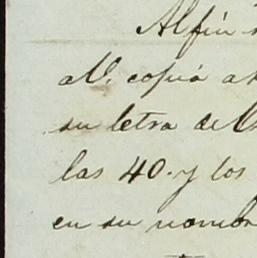 Alfin
a V. copia a
su letra de
las 40. y los
en su nombr